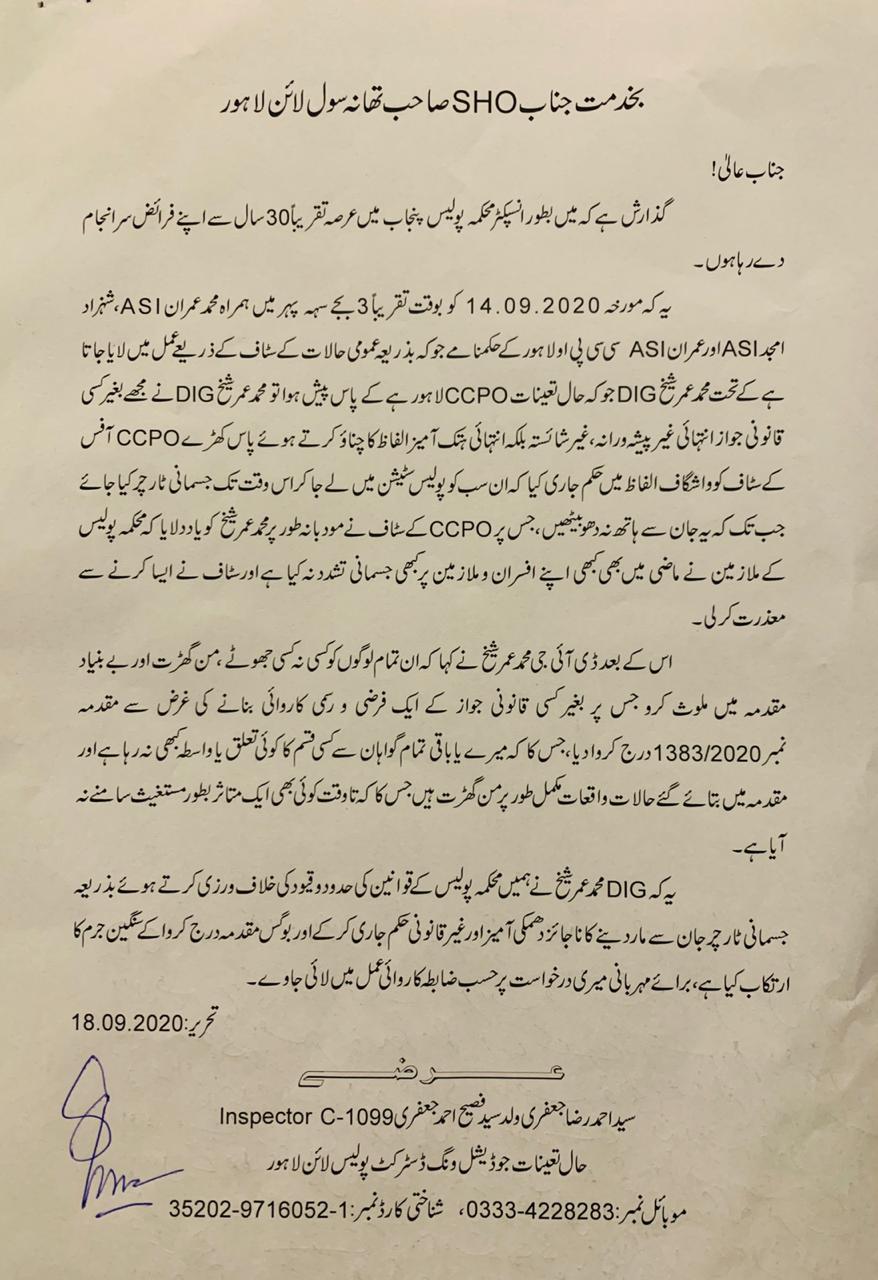 بخدمت جناب SHO صاحب تھانہ سول لائن لاہور
جناب عالیٰ!
گذارش ہے کہ میں بطور انسپکٹر محکمہ پولیس پنجاب میں عرصہ تقریباً 30 سال سے اپنے فرائض سر انجام
دے رہا ہوں۔
یہ کہ مورخہ 14.09.2020 کو بوقت تقریباً 3 بجے سہہ پہر میں ہمراہ محمد عمران ASI، شہزاد
امجد ASI اور عمران ASI سی سی پی او لاہور کے حکمنامے جو کہ بذریعہ عمومی حالات کے سٹاف کے ذریعے عمل میں لایا جاتا
ہے کے تحت محمد عمر شیخ DIG جو کہ حال تعینات CCPO لاہور ہے کے پاس پیش ہوا تو محمد عمر شیخ DIG نے مجھے بغیر کسی
قانونی جواز انتہائی غیر پیشہ ورانہ، غیر شائستہ بلکہ انتہائی ہتک آمیز الفاظ کا چناؤ کرتے ہوئے پاس کھڑے CCPO آفس
کے سٹاف کو واشگاف الفاظ میں حکم جاری کیا کہ ان سب کو پولیس سٹیشن میں لے جا کر اس وقت تک جسمانی ٹارچر کیا جائے
جب تک کہ یہ جان سے ہاتھ نہ دھو بیٹھیں، جس پر CCPO کے سٹاف نے مودبانہ طور پر محمد عمر شیخ کو یاد دلایا کہ محکمہ پولیس
کے ملازمین نے ماضی میں بھی کبھی اپنے افسران و ملازمین پر کبھی جسمانی تشدد نہ کیا ہے اور سٹاف نے ایسا کرنے سے
معذرت کر لی۔
اس کے بعد ڈی آئی جی محمد عمر شیخ نے کہا کہ ان تمام لوگوں کو کسی نہ کسی جھوٹے، من گھڑت اور بے بنیاد
مقدمہ میں ملوث کرو جس پر بغیر کسی قانونی جواز کے ایک فرضی و رسمی کاروائی بنانے کی غرض سے مقدمہ
نمبر 1383/2020 درج کروا دیا، جس کا کہ میرے یا باقی تمام گواہان سے کسی قسم کا کوئی تعلق یا واسطہ کبھی نہ رہا ہے اور
مقدمہ میں بتائے گئے حالات واقعات مکمل طور پر من گھڑت ہیں جس کا کہ تا وقت کوئی بھی ایک متاثر بطور مستغیث سامنے نہ
آیا ہے۔
یہ کہ DIG محمد عمر شیخ نے ہمیں محکمہ پولیس کے قوانین کی حدود و قیود کی خلاف ورزی کرتے ہوئے بذریعہ
جسمانی ٹارچر جان سے مار دینے کا ناجائز دھمکی آمیز اور غیر قانونی حکم جاری کر کے اور بوگس مقدمہ درج کروا کے سنگین جرم کا
ارتکاب کیا ہے، برائے مہربانی میری درخواست پر حسب ضابطہ کاروائی عمل میں لائی جاوے۔
تحریر: 18.09.2020
عرضے
سید احمد رضا جعفری ولد سید فصیح احمد جعفری Inspector C-1099
حال تعینات جوڈیشل ونگ ڈسٹرکٹ پولیس لائن لاہور
موبائل نمبر: 0333-4228283، شناختی کارڈ نمبر: 35202-9716052-1